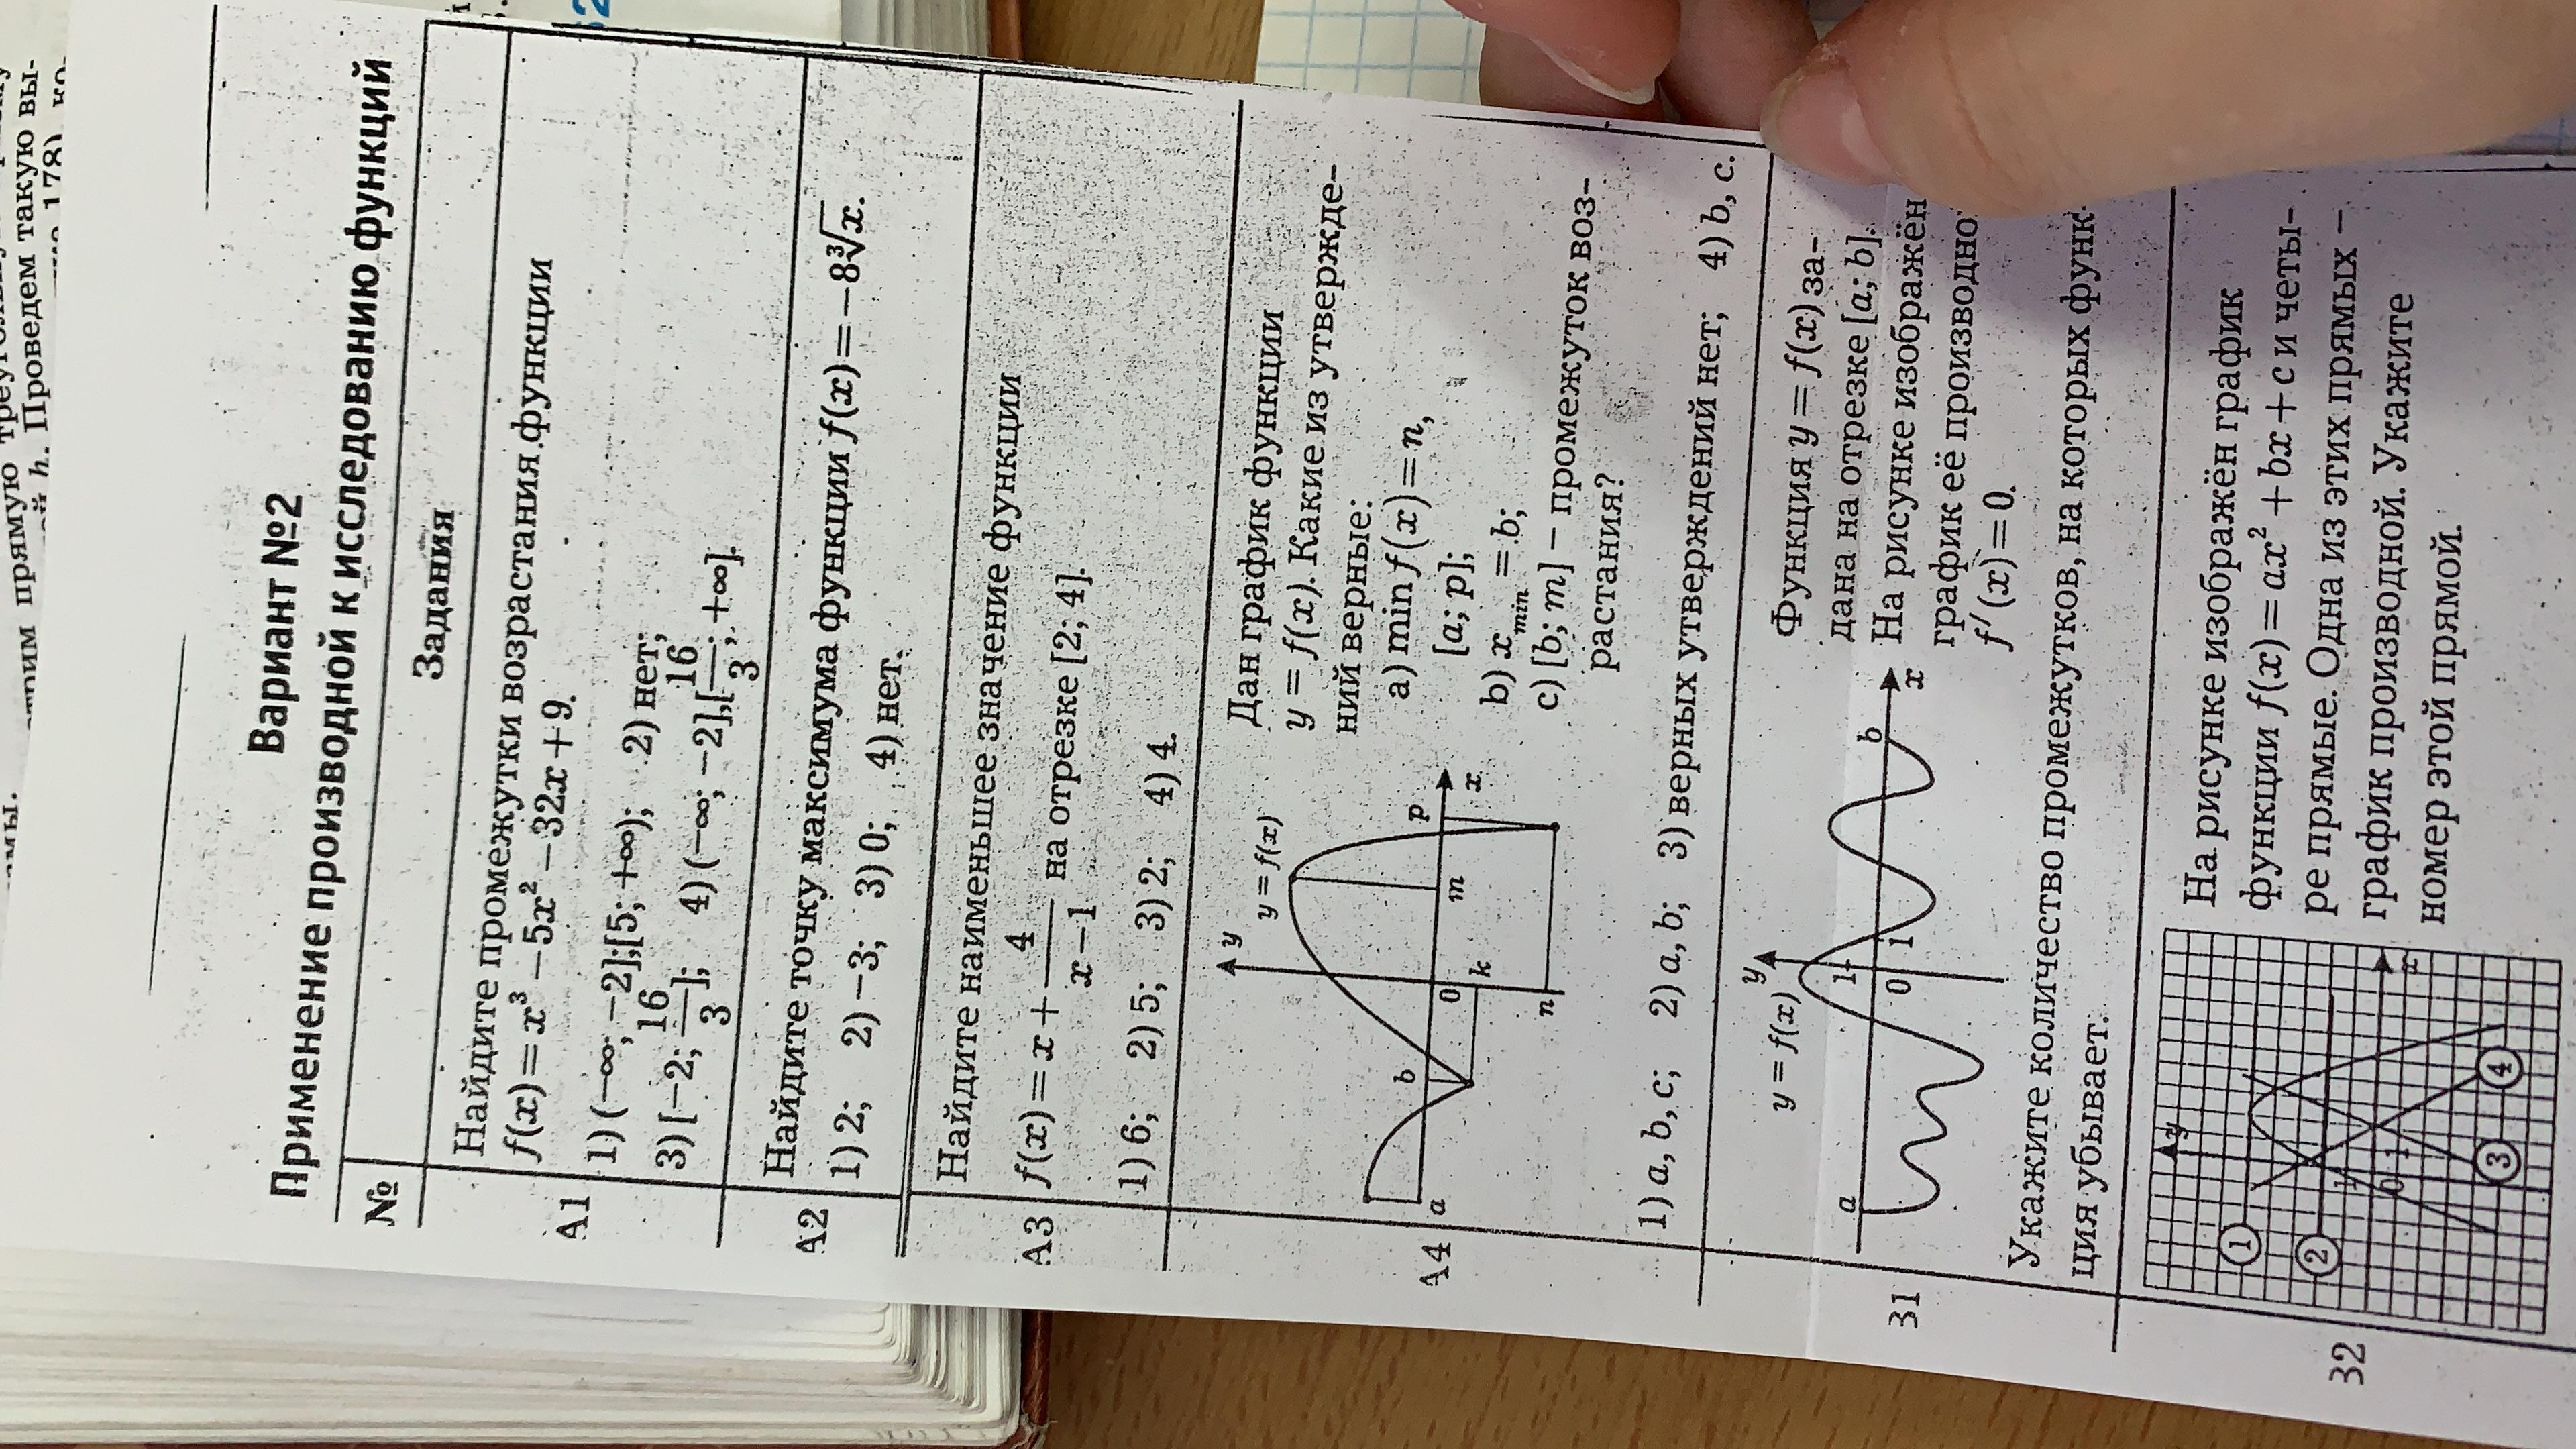 Проведем такую вы-
Вариант №2
Применение производной к исследованию функций
№ Задания
A1 Найдите промежутки возрастания функции
f(x) = x³ − 5x² − 32x + 9.
1) (−∞; −2];[5; +∞); 2) нет;
3) [−2; 16/3]; 4) (−∞; −2],[16/3; +∞].
A2 Найдите точку максимума функции f(x) = −8∛x.
1) 2; 2) −3; 3) 0; 4) нет.
A3 Найдите наименьшее значение функции
f(x) = x + 4/(x−1) на отрезке [2; 4].
1) 6; 2) 5; 3) 2; 4) 4.
A4
y
y = f(x)
a b 0 k m p x
n
Дан график функции
y = f(x). Какие из утвержде-
ний верные:
a) min f(x) = n,
[a; p];
b) x min = b;
c) [b; m] – промежуток воз-
растания?
1) a, b, c; 2) a, b; 3) верных утверждений нет; 4) b, c.
B1
y = f(x) y
a 1 0 1 b x
Функция y = f(x) за-
дана на отрезке [a; b].
На рисунке изображён
график её производно
f′(x) = 0.
Укажите количество промежутков, на которых функ-
ция убывает.
B2
y
1 2 3 4
1 0 1 x
На рисунке изображён график
функции f(x) = ax² + bx + c и четы-
ре прямые. Одна из этих прямых –
график производной. Укажите
номер этой прямой.